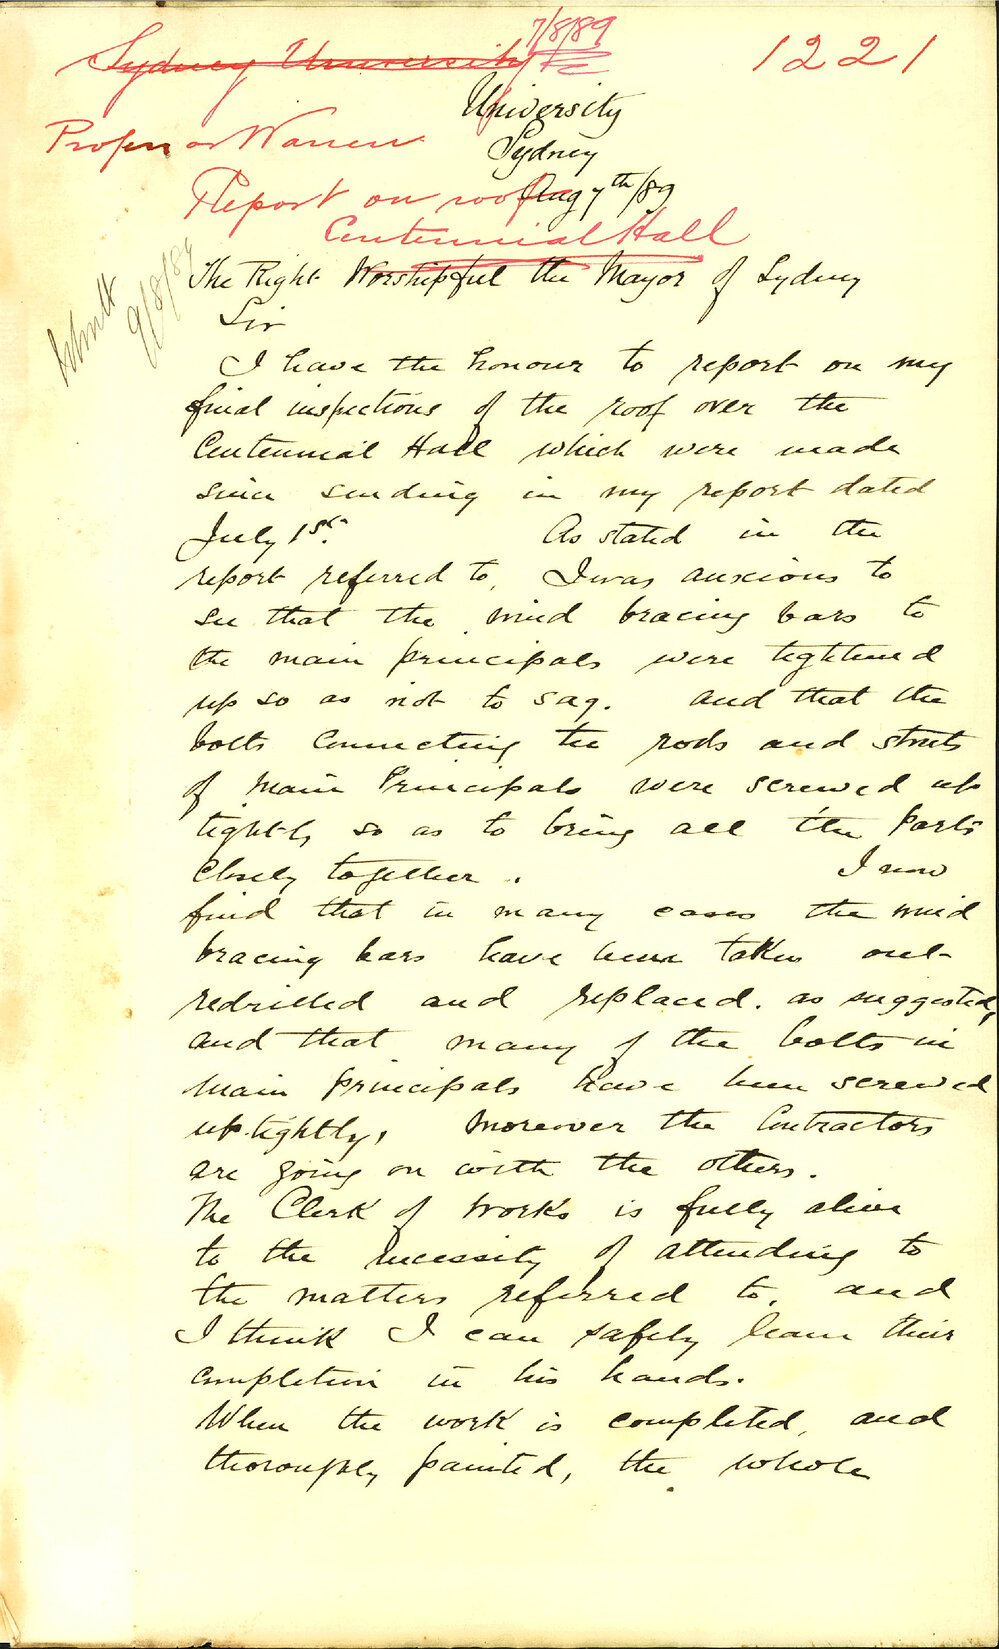 7/8/89
Sydney University
1221
University
Professor Warren
Sydney
Report on roof
Aug 7th/89
Centennial Hall
9/8/89
The Right Worshipful the Mayor of Sydney
Sir
I have the honour to report on my
final inspections of the roof over the
Centennial Hall which were made
since sending in my report dated
July 1st. As stated in the
report referred to, I was anxious to
see that the wind bracing bars to
the main principals were tightened
up so as not to sag. and that the
bolts connecting the rods and struts
of Main Principals were screwed up
tightly so as to bring all the parts
closely together. I now
find that in many cases the wind
bracing bars have been taken out
redrilled and replaced. as suggested,
and that many of the bolts in
main principals have been screwed
up tightly, moreover the Contractors
are going on with the others.
The Clerk of Works is fully alive
to the necessity of attending to
the matters referred to, and
I think I can safely leave their
completion in his hands.
When the work is completed, and
thoroughly painted, the whole